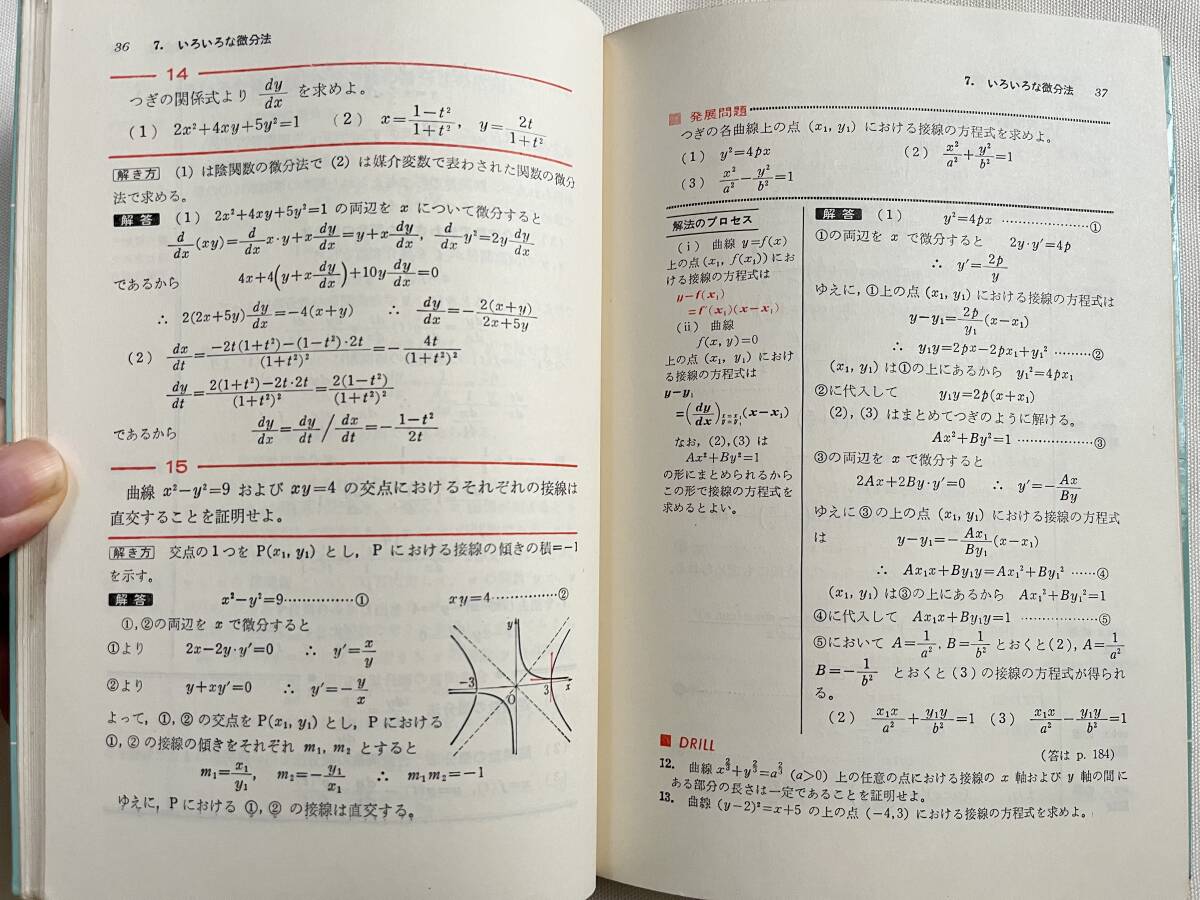 36 7. いろいろな微分法
14
つぎの関係式より dy/dx を求めよ。
(1) 2x²+4xy+5y²=1 (2) x=(1−t²)/(1+t²), y=2t/(1+t²)
解き方 (1) は陰関数の微分法で (2) は媒介変数で表わされた関数の微分
法で求める。
解答 (1) 2x²+4xy+5y²=1 の両辺を x について微分すると
d/dx(xy)=d/dx x·y+x dy/dx=y+x dy/dx, d/dx y²=2y dy/dx
であるから 4x+4(y+x dy/dx)+10y dy/dx=0
∴ 2(2x+5y)dy/dx=−4(x+y) ∴ dy/dx=−2(x+y)/(2x+5y)
(2) dx/dt=(−2t(1+t²)−(1−t²)·2t)/(1+t²)²=−4t/(1+t²)²
dy/dt=(2(1+t²)−2t·2t)/(1+t²)²=2(1−t²)/(1+t²)²
であるから dy/dx=dy/dt/dx/dt=−(1−t²)/2t
15
曲線 x²−y²=9 および xy=4 の交点におけるそれぞれの接線は
直交することを証明せよ。
解き方 交点の1つを P(x₁, y₁) とし, P における接線の傾きの積=−1
を示す。
解答 x²−y²=9……………① xy=4……………②
①,②の両辺を x で微分すると
①より 2x−2y·y′=0 ∴ y′=x/y
②より y+xy′=0 ∴ y′=−y/x
よって, ①, ② の交点を P(x₁, y₁) とし, P における
①, ② の接線の傾きをそれぞれ m₁, m₂ とすると
m₁=x₁/y₁, m₂=−y₁/x₁ ∴ m₁m₂=−1
ゆえに, P における ①, ② の接線は直交する。
y
−3 O 3 x
7. いろいろな微分法 37
発展問題
つぎの各曲線上の点 (x₁, y₁) における接線の方程式を求めよ。
(1) y²=4px (2) x²/a²+y²/b²=1
(3) x²/a²−y²/b²=1
解法のプロセス
(i) 曲線 y=f(x)
上の点(x₁, f(x₁))にお
ける接線の方程式は
y−f(x₁)
=f′(x₁)(x−x₁)
(ii) 曲線
f(x, y)=0
上の点 (x₁, y₁) におけ
る接線の方程式は
y−y₁
=(dy/dx)x=x₁ y=y₁(x−x₁)
なお, (2),(3) は
Ax²+By²=1
の形にまとめられるから
この形で接線の方程式を
求めるとよい。
解答 (1) y²=4px ………………①
①の両辺を x で微分すると 2y·y′=4p
∴ y′=2p/y
ゆえに, ①上の点 (x₁, y₁) における接線の方程式は
y−y₁=2p/y₁(x−x₁)
∴ y₁y=2px−2px₁+y₁² ………②
(x₁, y₁) は①の上にあるから y₁²=4px₁
②に代入して y₁y=2p(x+x₁)
(2), (3) はまとめてつぎのように解ける。
Ax²+By²=1 ………………③
③の両辺を x で微分すると
2Ax+2By·y′=0 ∴ y′=−Ax/By
ゆえに③の上の点 (x₁, y₁) における接線の方程式
は y−y₁=−Ax₁/By₁(x−x₁)
∴ Ax₁x+By₁y=Ax₁²+By₁² ……④
(x₁, y₁) は③の上にあるから Ax₁²+By₁²=1
④に代入して Ax₁x+By₁y=1 ………………⑤
⑤において A=1/a², B=1/b² とおくと(2), A=1/a²
B=−1/b² とおくと (3) の接線の方程式が得られ
る。
(2) x₁x/a²+y₁y/b²=1 (3) x₁x/a²−y₁y/b²=1
DRILL (答は p. 184)
12. 曲線 x^(2/3)+y^(2/3)=a^(2/3) (a>0) 上の任意の点における接線の x 軸および y 軸の間に
ある部分の長さは一定であることを証明せよ。
13. 曲線 (y−2)²=x+5 の上の点 (−4,3) における接線の方程式を求めよ。